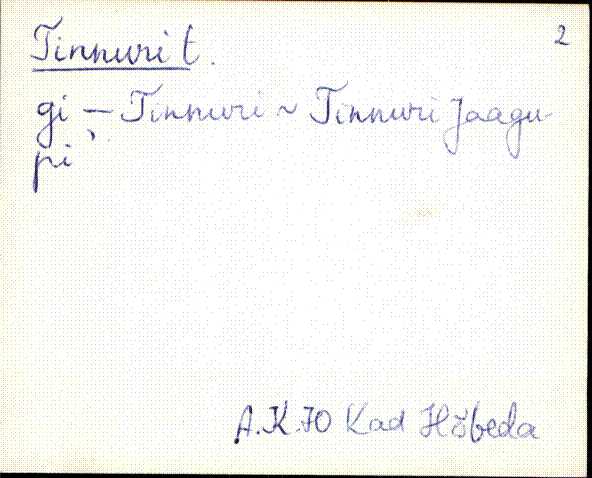 2
Tinnuri t.
gi — Tinnuri ~ Tinnuri Jaagu-
pi
A.K. 70 Kad Hõbeda